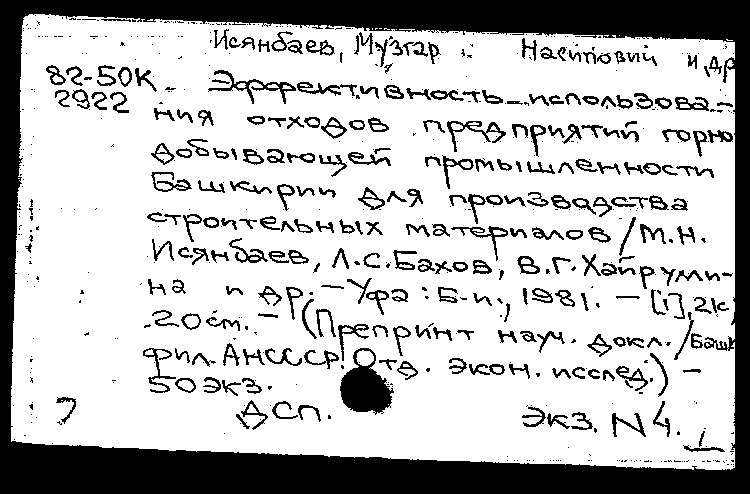 Исянбаев, Музгар Насипович и др
82-50К Эффективность использова-
2922 ния отходов предприятий горно
добывающей промышленности
Башкирии для производства
строительных материалов / М.Н.
Исянбаев, Л.С. Бахов, В.Г. Хайрули-
на и др. - Уфа : Б-и., 1981. - [1], 2
20 см. - (Препринт науч. докл. / Баш
фил. АНСССР. Отд. экон. исслед.) -
50 экз.
ДСП. экз. N 4.